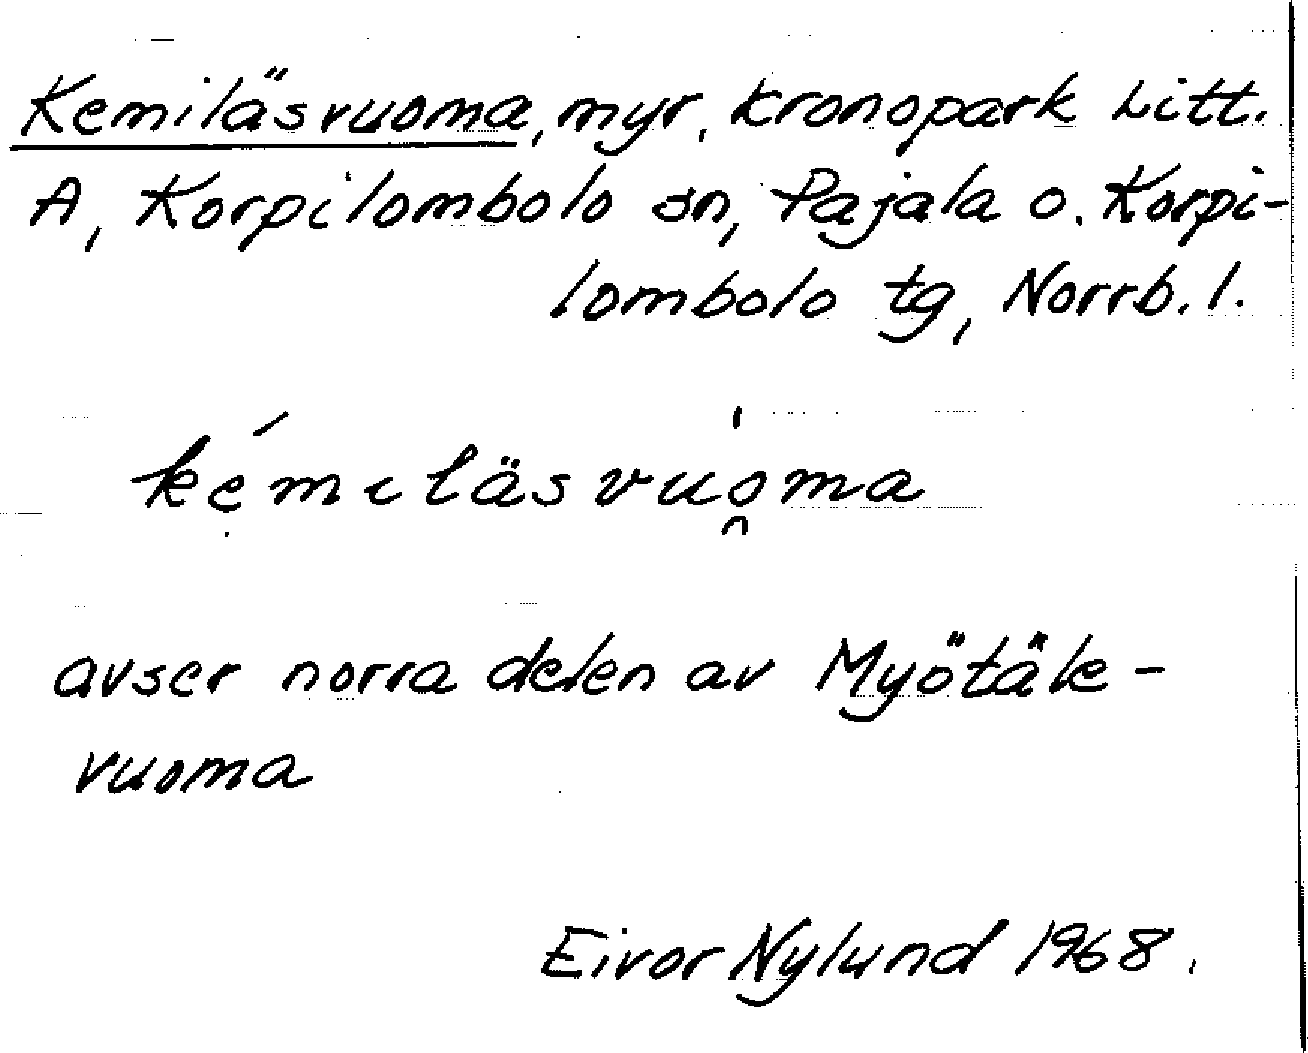 Kemiläsvuoma, myr, kronopark Litt.
A, Korpilombolo sn, Pajala o. Korpi-
lombolo tg, Norrb. l.
kẹ́mıläsvuo̯̍ma
avser norra delen av Myötäle-
vuoma
Eivor Nylund 1968.